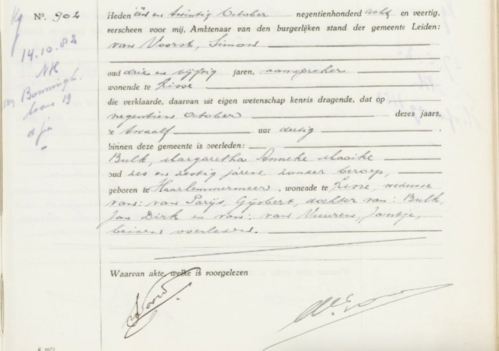 Nº. 902
Heden een en twintig October negentienhonderd acht en veertig,
verscheen voor mij, Ambtenaar van den burgerlijken stand der gemeente Leiden:
van Voorst, Simon
oud drie en vijftig jaren, aanspreker
wonende te Lisse
die verklaarde, daarvan uit eigen wetenschap kennis dragende, dat op
negentien October dezes jaars,
te twaalf uur dertig
binnen deze gemeente is overleden:
Bulk, Margaretha Maaike
oud zes en zestig jaren, zonder beroep,
geboren te Haarlemmermeer, wonende te Lisse, weduwe
van: van Parijs, Gijsbert, dochter van: Bulk,
Jan Dirk en van: van Vuuren, Jantje,
beiden overleden.
Waarvan akte, welke is voorgelezen
14.10.82